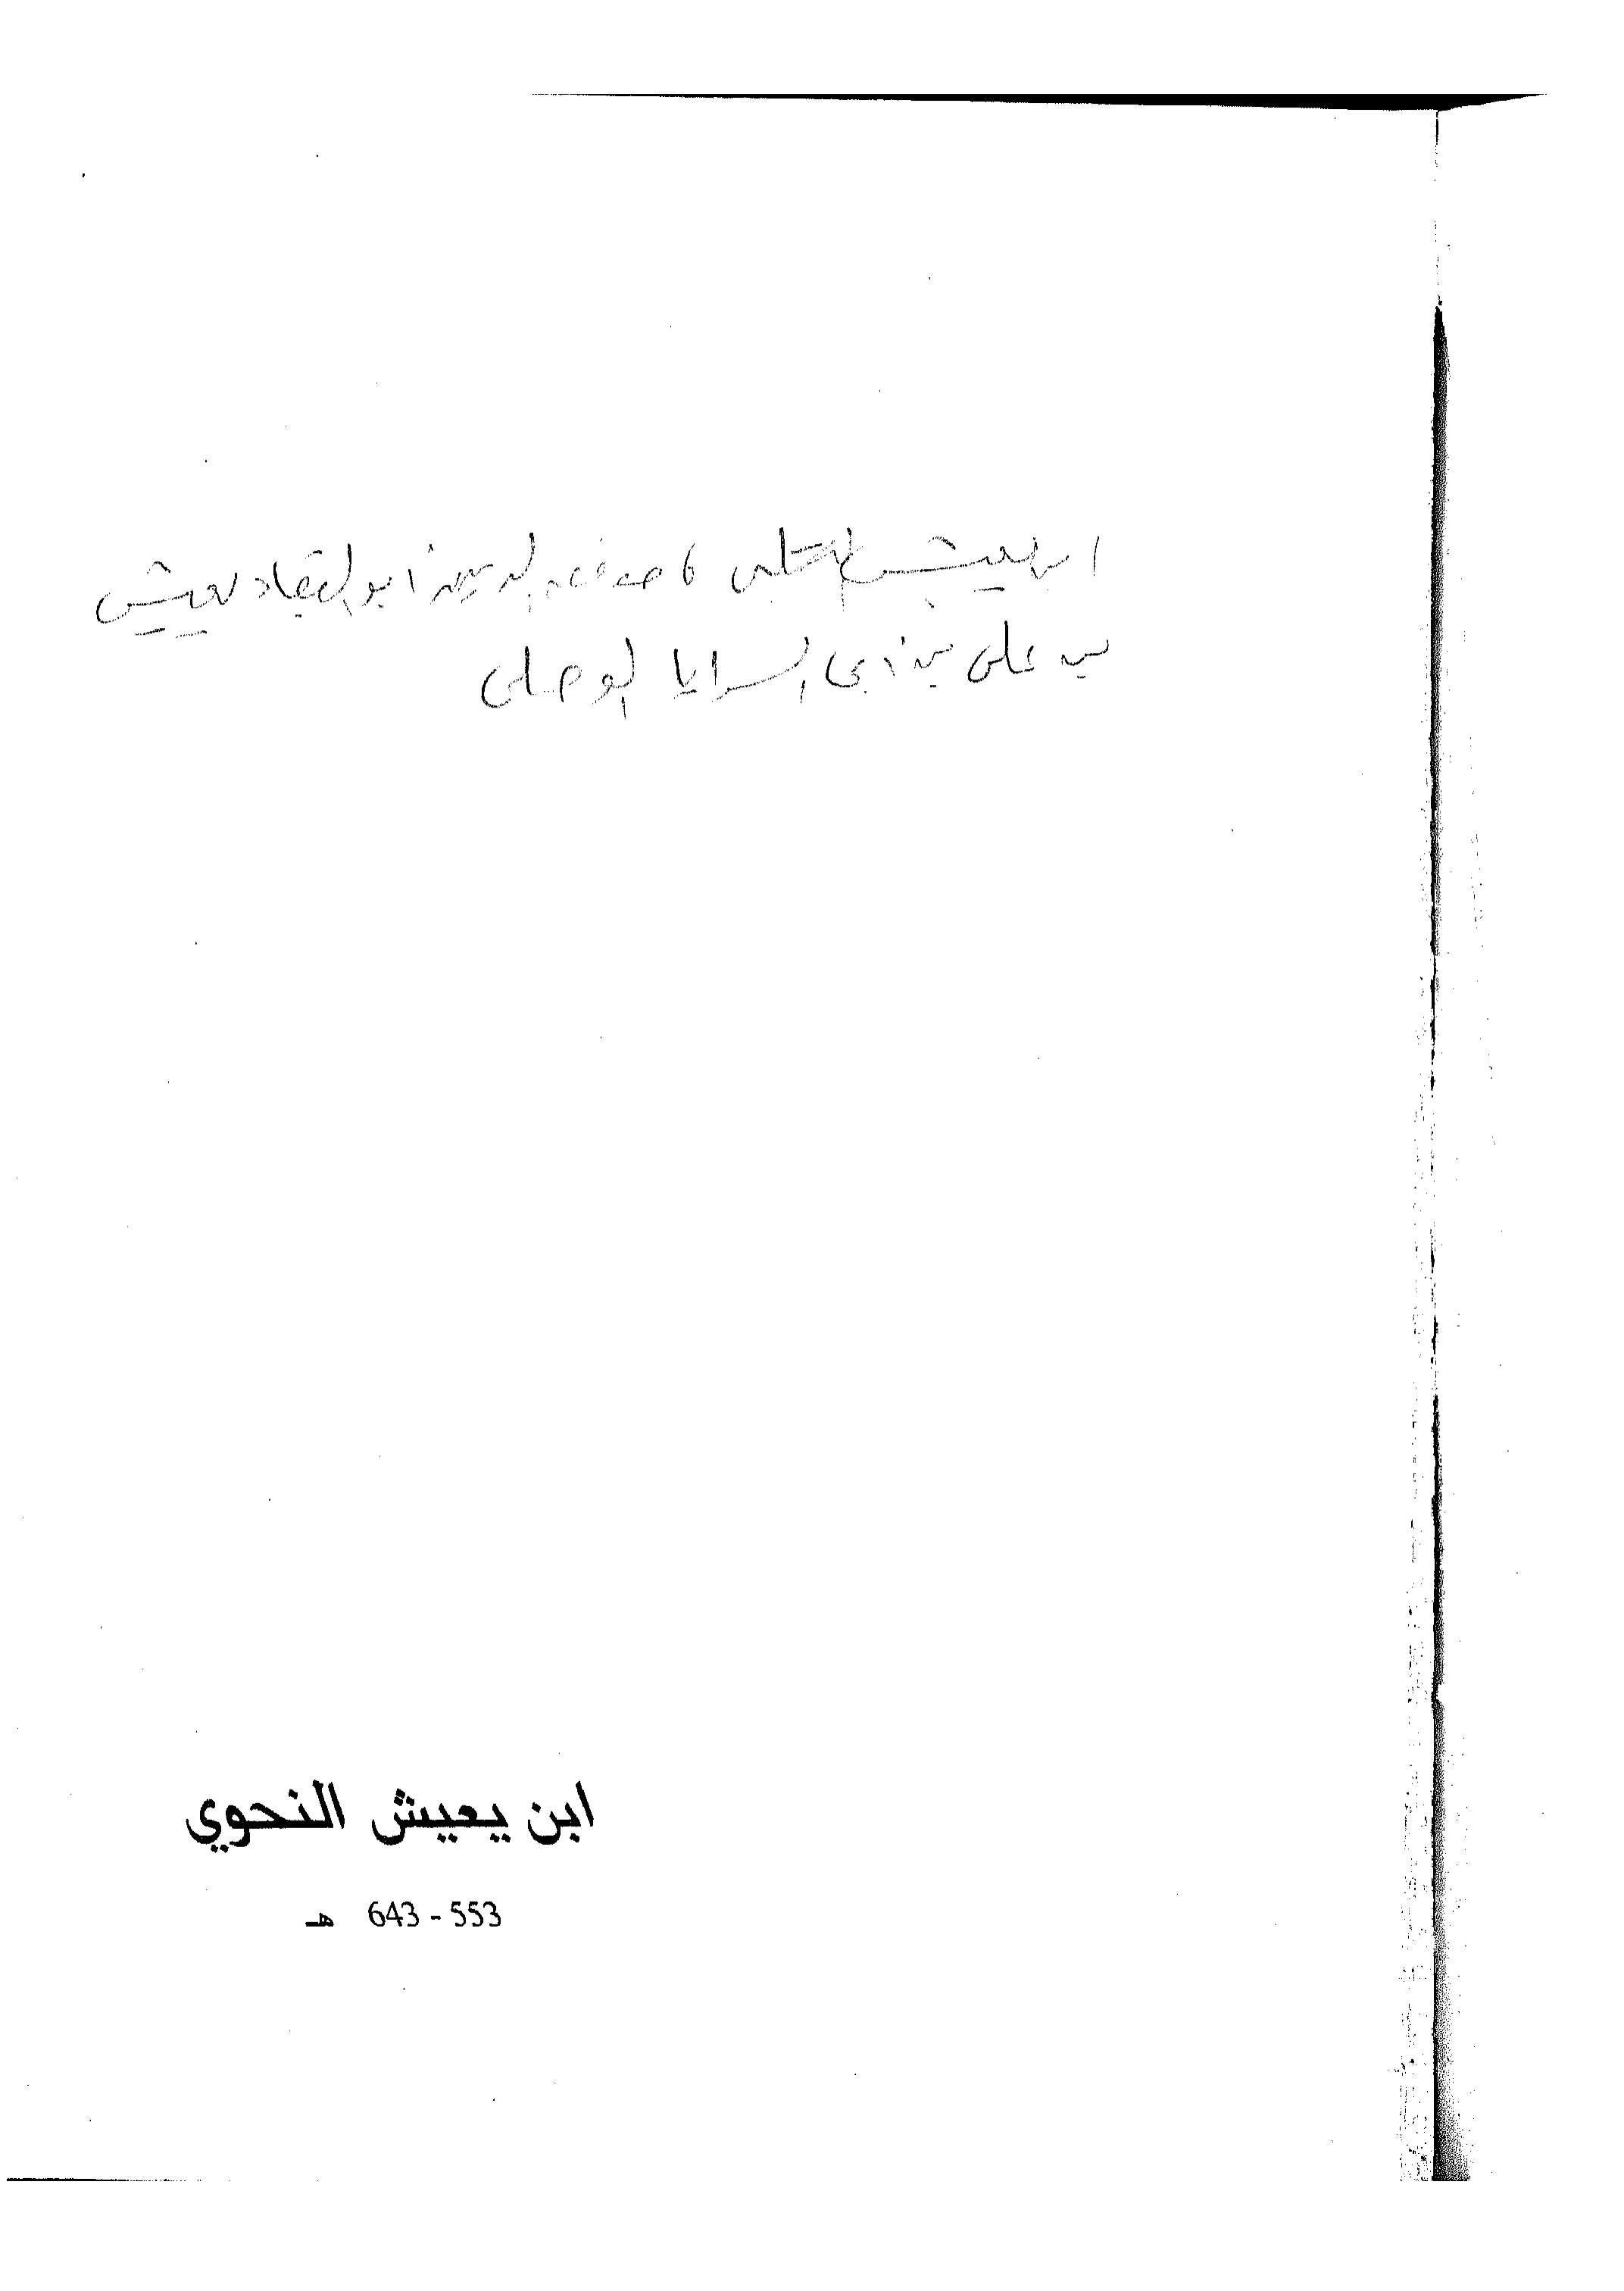 ابن يعيش الحلبي، موفق الدين أبو البقاء يعيش
بن علي بن أبي السرايا الموصلي
ابن يعيش النحوي
553 - 643 هـ